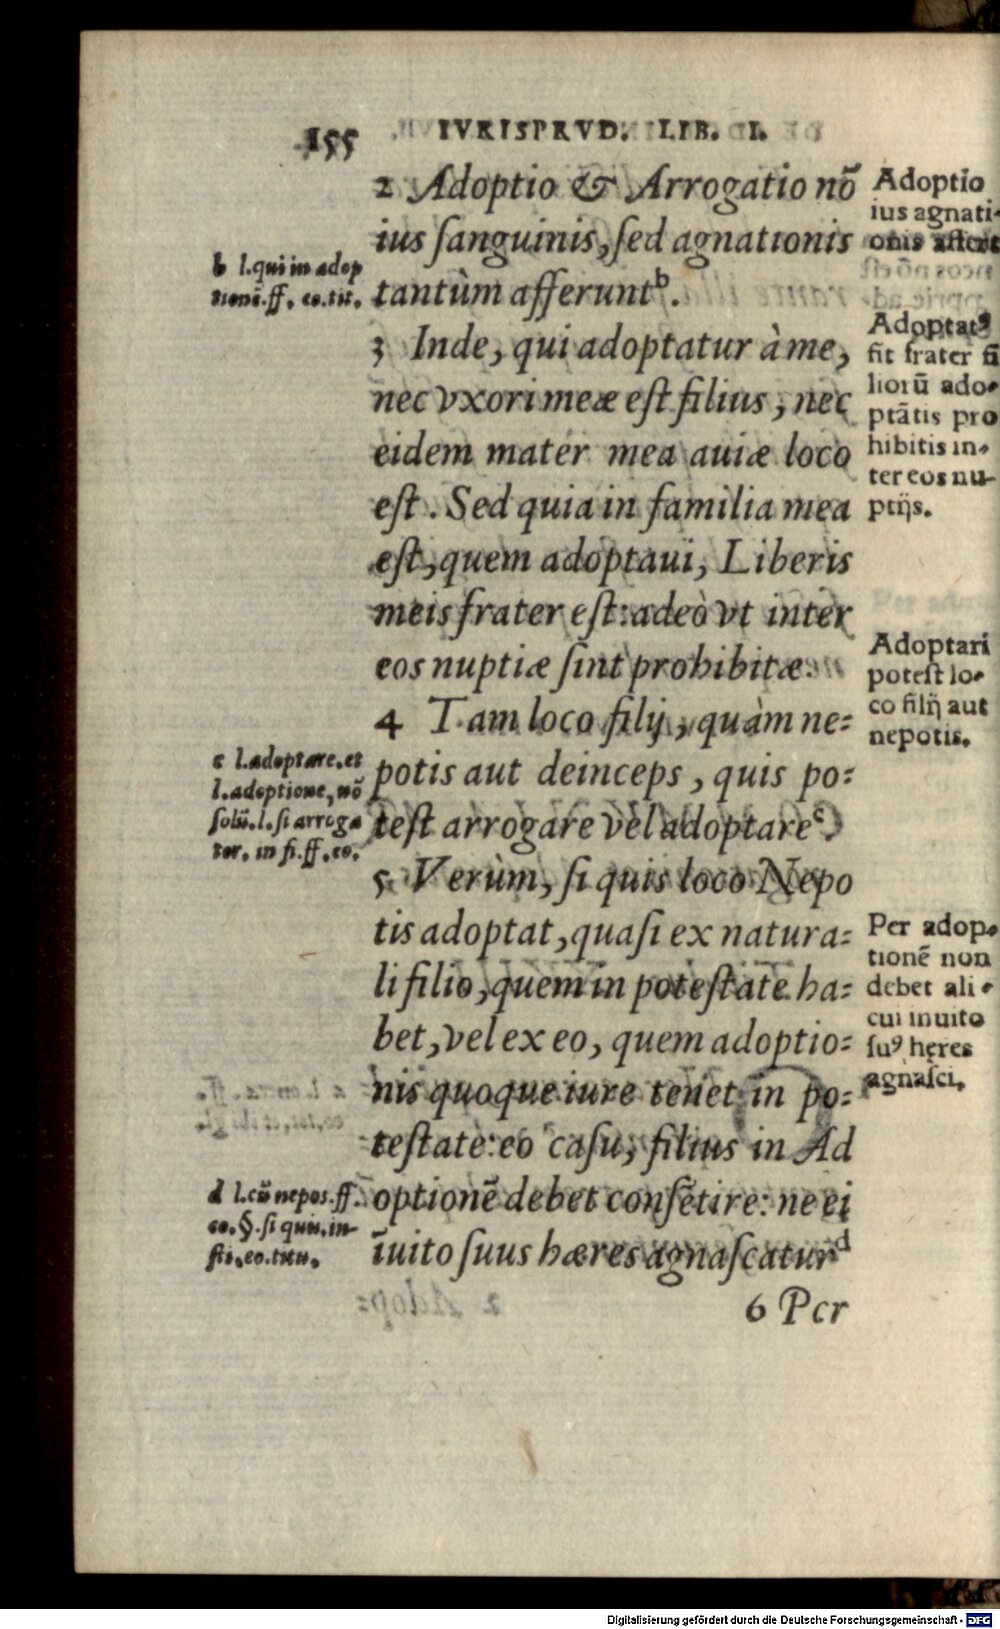 155 IVRISPRVD. LIB. I.
2 Adoptio & Arrogatio nō
ius ſanguinis, ſed agnationis
tantùm afferuntᵇ.
3 Inde, qui adoptatur à me,
nec vxori meæ eſt filius, nec
eidem mater mea auiæ loco
eſt. Sed quia in familia mea
eſt, quem adoptaui, Liberis
meis frater eſt: adeò vt inter
eos nuptiæ ſint prohibitæ.
4 Tam loco filij, quàm ne⸗
potis aut deinceps, quis po⸗
teſt arrogare vel adoptareᶜ.
5 Verùm, ſi quis loco Nepo
tis adoptat, quaſi ex natura⸗
li filio, quem in poteſtate ha⸗
bet, vel ex eo, quem adoptio⸗
nis quoque iure tenet in po⸗
teſtate: eo caſu, filius in Ad
optionē debet conſētire: ne ei
īuito ſuus hæres agnaſcaturᵈ
6 Per
b l. qui in adop
tionē. ff. eo. tit.
c l. adoptare. et
l. adoptione, nō
ſolū. l. ſi arroga
tor. in fi. ff. eo.
d l. cū nepos. ff.
eo. §. ſi quis. in⸗
ſti. eo. titu.
Adoptio
ius agnati⸗
onis affert
Adoptatꝰ
fit frater fi
liorū ado⸗
ptātis pro
hibitis in⸗
ter eos nu⸗
ptijs.
Adoptari
poteſt lo⸗
co filij aut
nepotis.
Per adop⸗
tionē non
debet ali⸗
cui inuito
ſuꝰ heres
agnaſci.
Digitalisierung gefördert durch die Deutsche Forschungsgemeinschaft - DFG